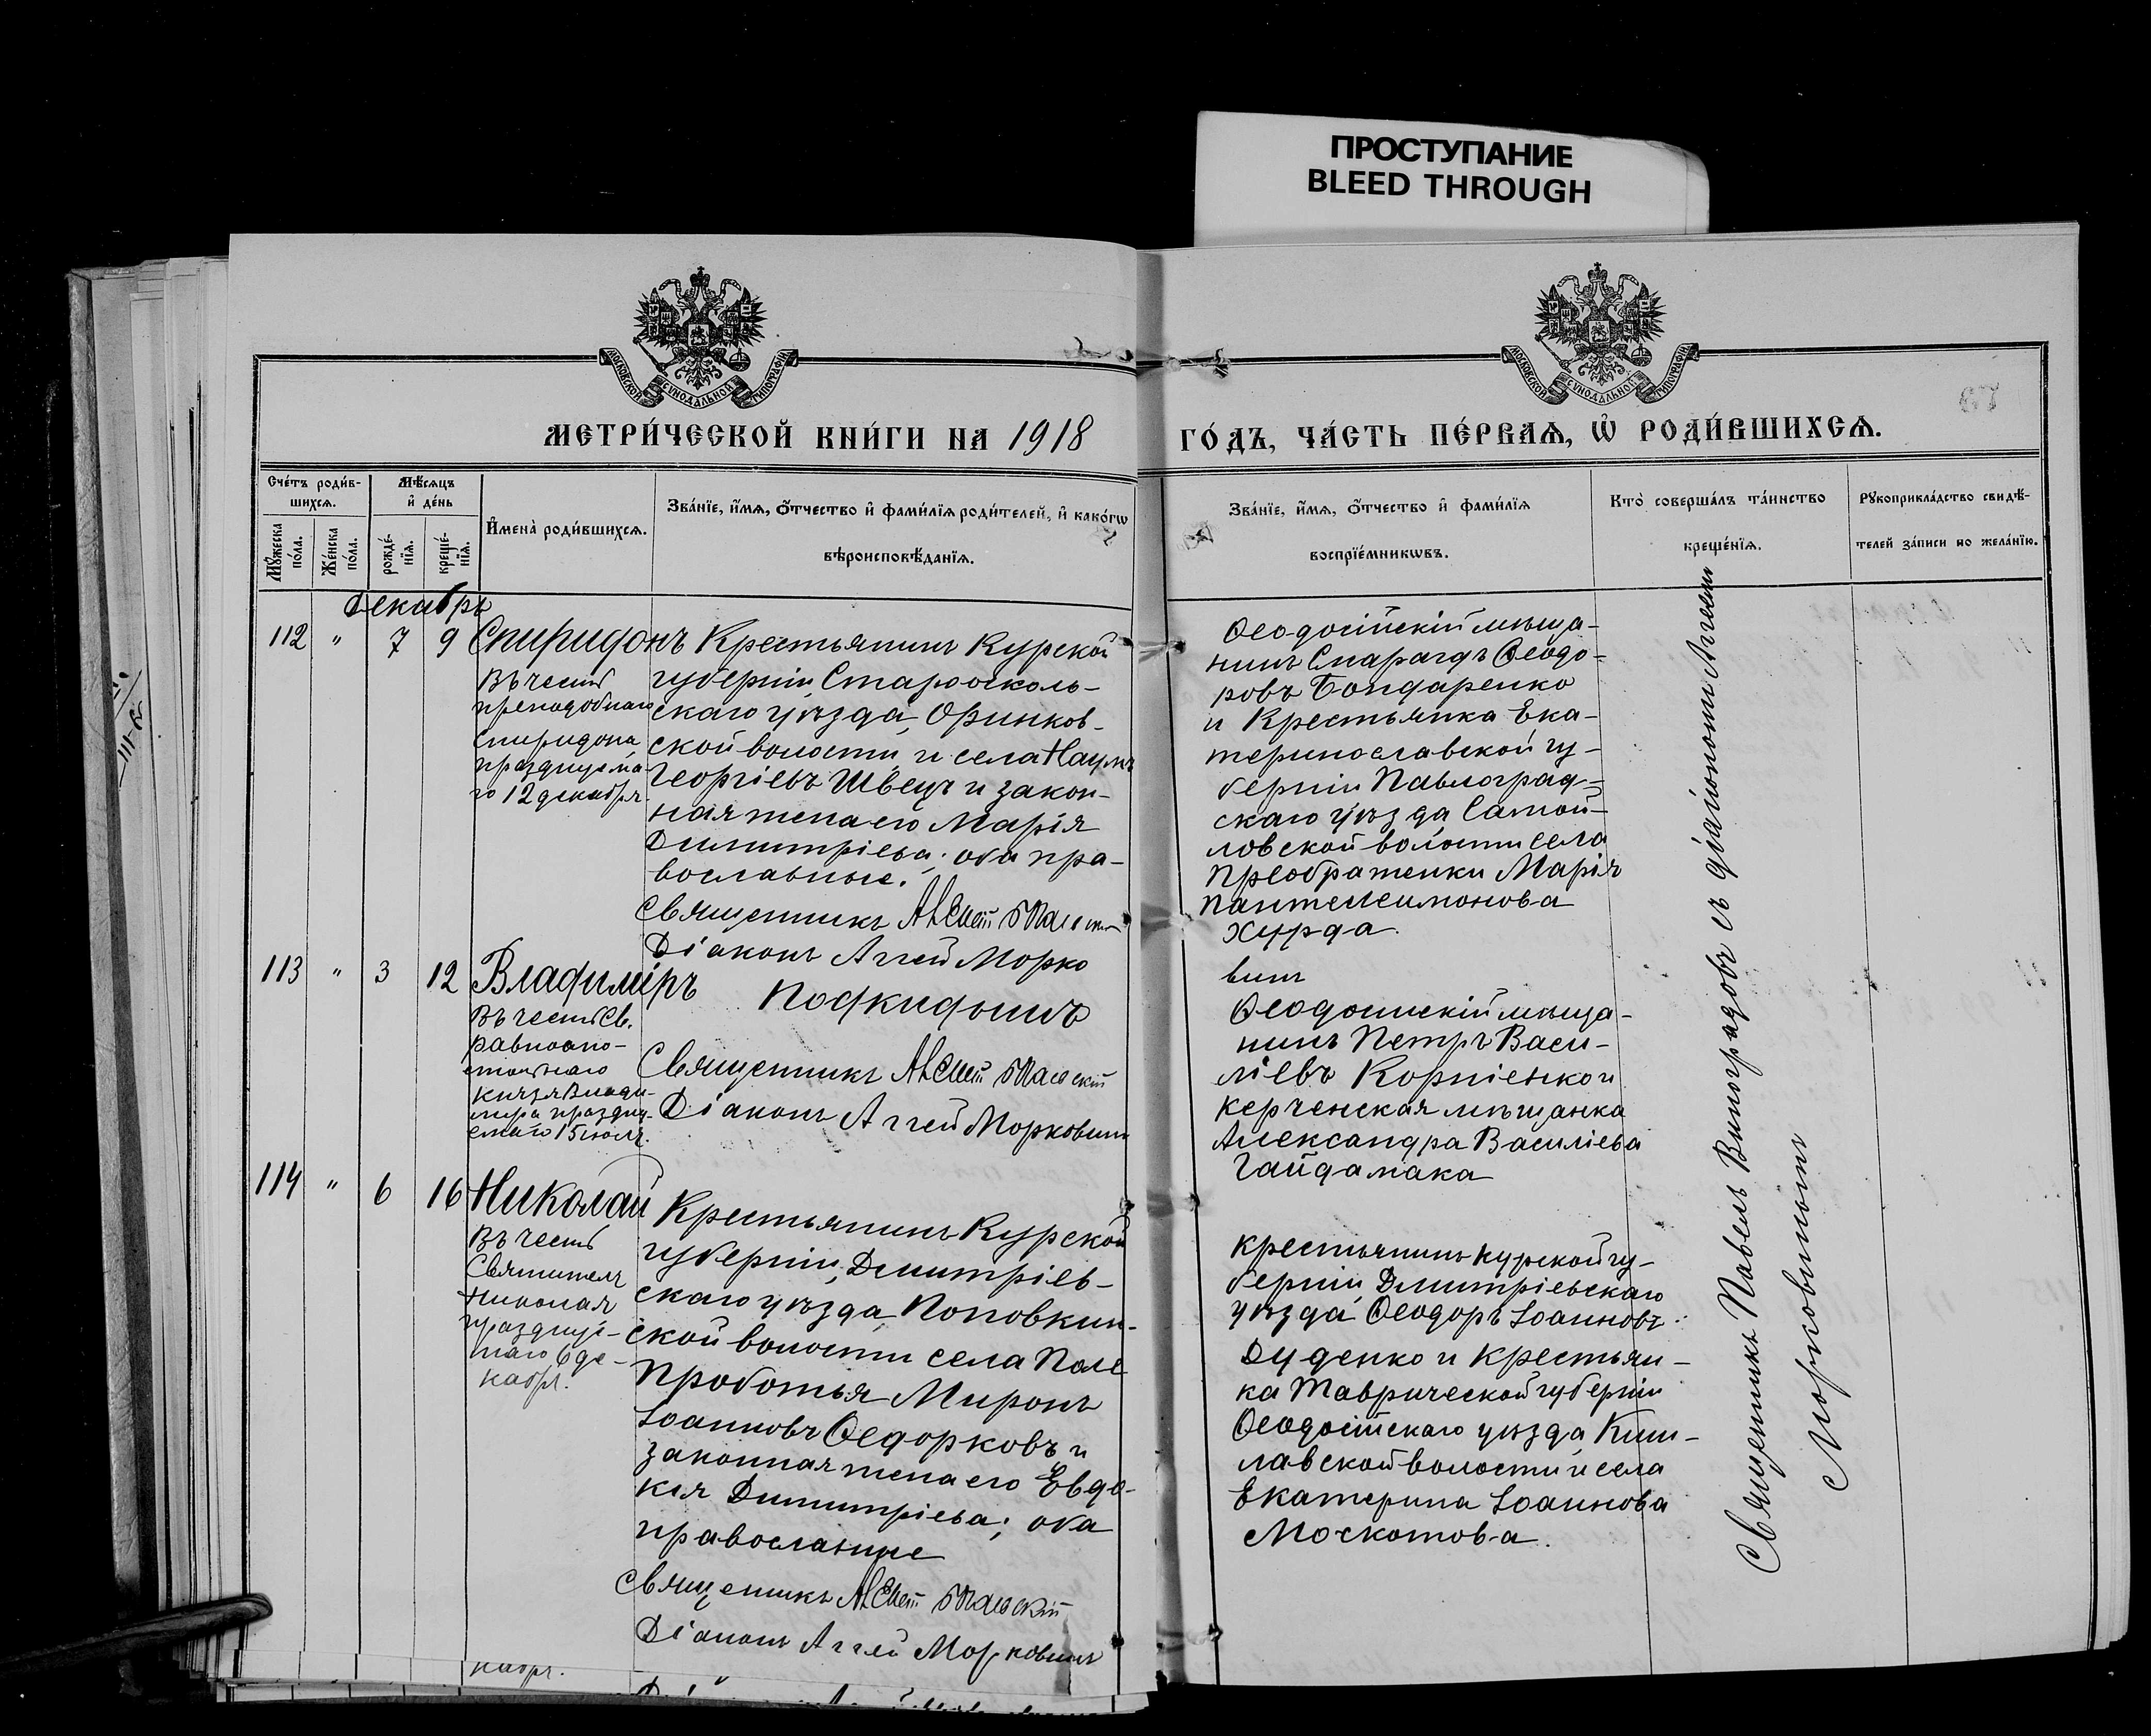 ПРОСТУПАНИЕ
BLEED THROUGH
МОСКОВСКОЙ СѴНОДАЛЬНОЙ ТИПОГРАФІИ
МОСКОВСКОЙ СѴНОДАЛЬНОЙ ТИПОГРАФІИ
МЕТРИ́ЧЕСКОЙ КНИ́ГИ НА 1918
ГО́ДЪ, ЧА́СТЬ ПЕ́РВАѦ, Ѡ҆ РОДИ́ВШИХСѦ.
Сче́тъ роди́в-
шихсѧ.
Мѣ́сѧцъ
и҆ де́нь
Мꙋ́жеска
по́ла.
Же́нска
по́ла.
рожде́-
нїѧ.
креще́-
нїѧ.
И҆мена̀ роди́вшихсѧ.
Зва́нїе, и҆́мѧ, ѻ҆́тчество и҆ фами́лїѧ роди́телей, и҆ како́гѡ
вѣроисповѣ́данїѧ.
Зва́нїе, и҆́мѧ, ѻ҆́тчество и҆ фами́лїѧ
воспрїе́мникѡвъ.
Кто̀ соверша́лъ та́инство
креще́нїѧ.
Рꙋкоприкла́дство свидѣ́-
телей за́писи по жела́нїю.
Декабрь
112 " 7 9 Спиридонъ
Въ честь
преподобнаго
Спиридона
празднуема-
го 12 декабря.
Крестьянинъ Курской
губерніи, Старооколь-
скаго уѣзда,
ской волости и села Наумъ
Георгіевъ Швецъ и закон-
ная жена его Марія
Димитріева; оба пра-
вославные.
Священникъ
Діаконъ Аггей Морко
винъ
Ѳеодосійскій мѣща-
нинъ Смарагдъ Ѳеодо-
ровъ Бондаренко
и Крестьянка Ека-
теринославской гу-
берніи Павлоград-
скаго уѣзда Самой-
ловской волости села
Преображенки Марія
Пантелеимонова
Хурда.
113 " 3 12 Владиміръ
Въ честь Св.
равноапо-
стольнаго
Князя Влади-
мира праздну-
емаго 15 іюля.
Подкидышъ
Священникъ
Діаконъ Аггей Морковинъ
Ѳеодосійскій мѣща-
нинъ Петръ Васи-
ліевъ Корніенко и
Керченская мѣщанка
Александра Василіева
Гайдамака
114 " 6 16 Николай
Въ честь
Святителя
Николая
праздную-
маго 6 де-
кабря.
Крестьянинъ Курской
губерніи, Димитріев-
скаго уѣзда, Поповкин-
ской волости села Поле
Проботья Миронъ
Іоанновъ Ѳедорковъ и
законная жена его Евдо-
кія Димитріева; оба
православные
Священникъ
Діаконъ Аггей Морковинъ
Крестьянинъ Курской гу-
берніи, Димитріевскаго
уѣзда Ѳеодоръ Іоанновъ
Дуденко и крестьян-
ка Таврической губерніи
Ѳеодосійскаго уѣзда Киш-
лавской волости и села
Екатерина Іоаннова
Москотова.
Священникъ Павелъ Виноградовъ съ діакономъ Аггеемъ
Морковинымъ